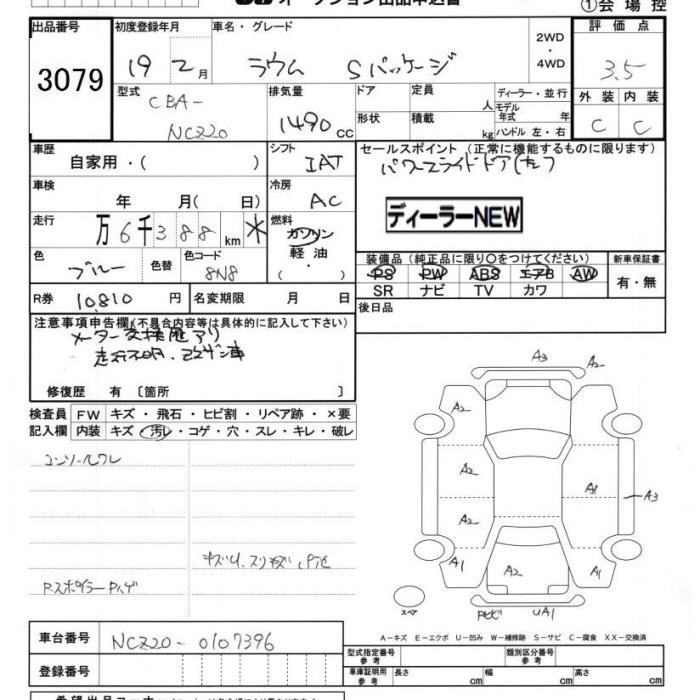 ①会場控
出品番号
3079
初度登録年月
19 2月
車名・グレード
ラウム Sパッケージ
2WD
・
4WD
評価点
3.5
型式
CBA-
NCZ20
排気量
1490 CC
ドア
定員
人
ディーラー・並行
モデル
年式 年
形状
積載
kg
ハンドル 左・右
外装 内装
C C
車歴
自家用・( )
シフト
IAT
セールスポイント (正常に機能するものに限ります)
パワースライドドア(左)
車検
年 月( 日)
冷房
AC
ディーラーNEW
走行
万6千388km
燃料
ガソリン
軽油
・
色
ブルー
色替
色コード
8N8
装備品(純正品に限り○をつけてください)
PS PW ABS エアB AW
SR ナビ TV カワ
新車保証書
有・無
R券
10,810 円
名変期限 月 日
後日品
注意事項申告欄(不具合内容等は具体的に記入して下さい)
メーター交換歴アリ
修復歴 有 〔箇所 〕
検査員
記入欄
FW キズ・飛石・ヒビ割・リペア跡・×要
内装 キズ・汚レ・コゲ・穴・スレ・キレ・破レ
コンソールワレ
Rスポイラー
A3
A2
A2
A2
A1
A3
A2
A1
A2
A1
スペア
UA1
A-キズ E-エクボ U-凹み W-補修跡 S-サビ C-腐食 XX-交換済
車台番号
NCZ20-0107396
登録番号
型式指定番号
参考
類別区分番号
参考
車庫証明用
参考
長さ cm
幅 cm
高さ cm